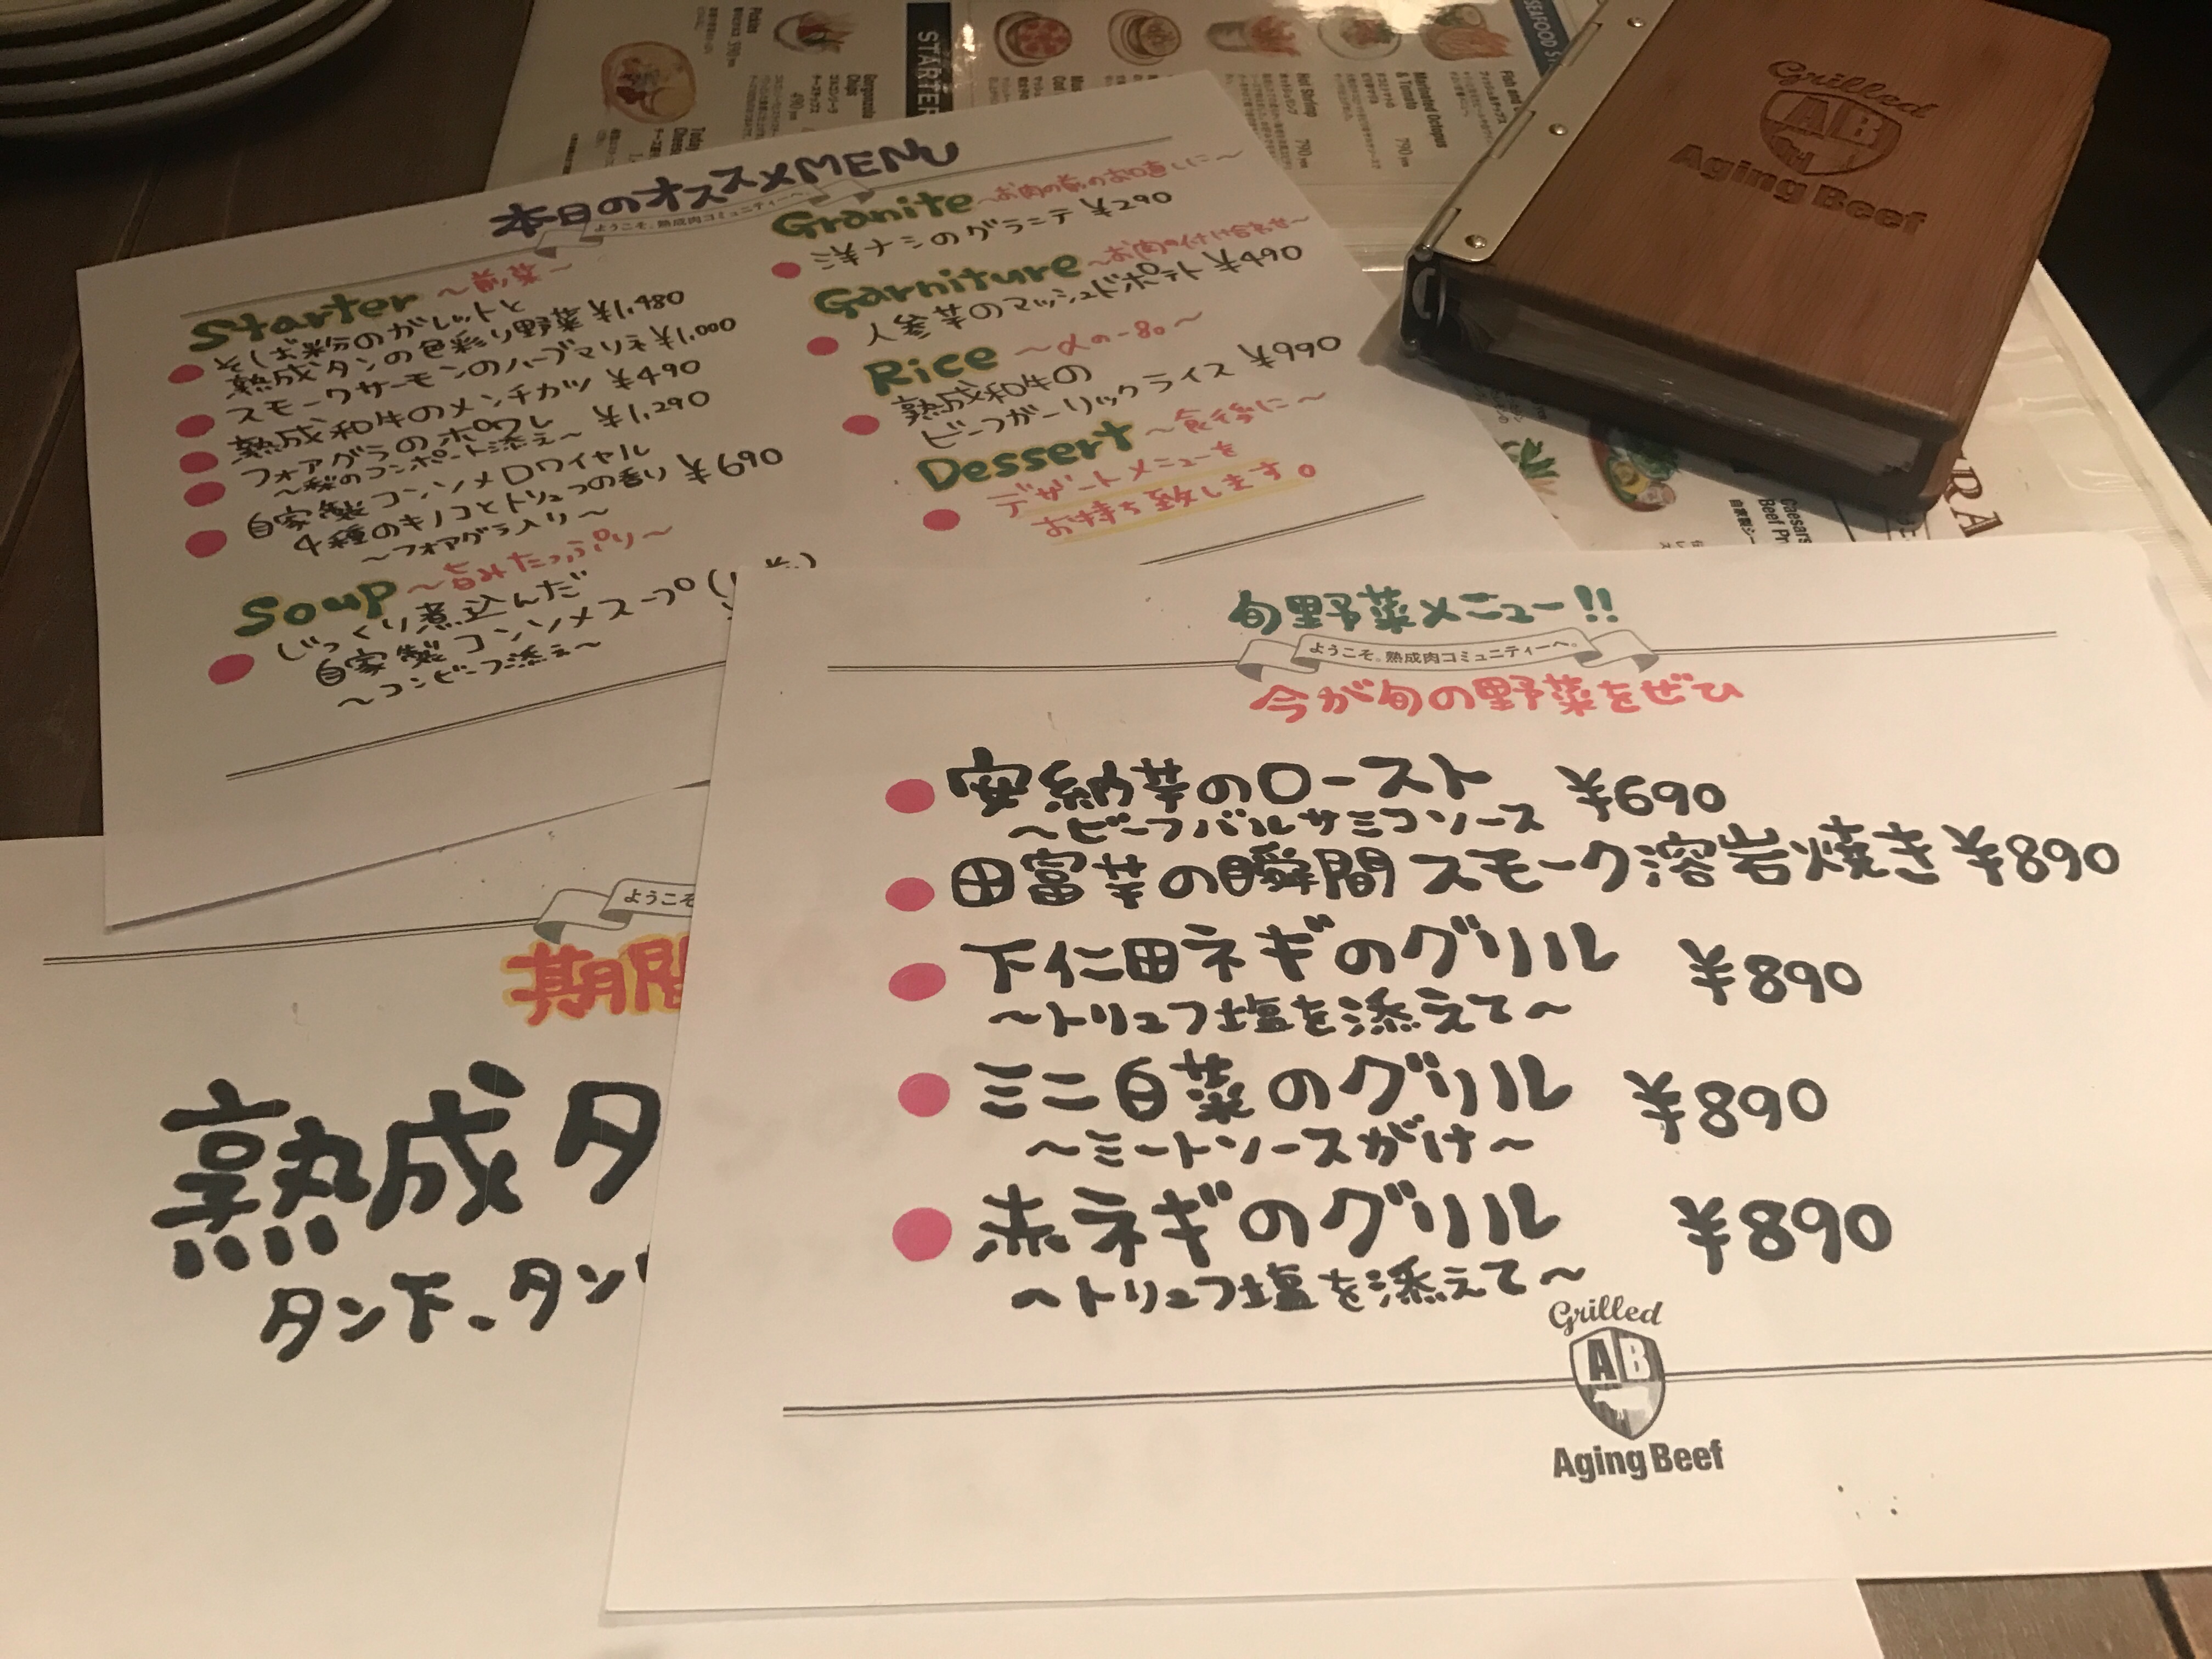 本日のオススメMENU
ようこそ。熟成肉コミュニティーへ。
Starter ～前菜～
そば粉のガレットと
熟成タンの色彩り野菜 ¥1,480
スモークサーモンのハーブマリネ ¥1,000
熟成和牛のメンチカツ ¥490
フォアグラのポワレ ¥1,290
～梨のコンポート添え～
自家製コンソメロワイヤル
4種のキノコとトリュフの香り ¥690
～フォアグラ入り～
Soup ～旨みたっぷり～
じっくり煮込んだ
自家製コンソメスープ
～コンビーフ添え～
Granite ～お肉の前のお口直しに～
洋ナシのグラニテ ¥290
Garniture ～お肉の付け合わせ～
人参芋のマッシュドポテト ¥490
Rice ～〆の一品～
熟成和牛の
ビーフガーリックライス ¥990
Dessert ～食後に～
デザートメニューを
お持ち致します。
Grilled
AB
Aging Beef
STARTER
SEAFOOD
Pickles
590
Gorgonzola
Chips
ゴルゴンゾーラ
チーズチップス
490
Marinated Octopus
& Tomato
790
Hot Shrimp
790
Caesar
Beef
旬野菜メニュー!!
ようこそ。熟成肉コミュニティーへ。
今が旬の野菜をぜひ
安納芋のロースト ¥690
～ビーフバルサミコソース
田富芋の瞬間スモーク溶岩焼き ¥890
下仁田ネギのグリル ¥890
～トリュフ塩を添えて～
ミニ白菜のグリル ¥890
～ミートソースがけ～
赤ネギのグリル ¥890
～トリュフ塩を添えて～
Grilled
AB
Aging Beef
ようこそ
期間
熟成タ
タン下、タン